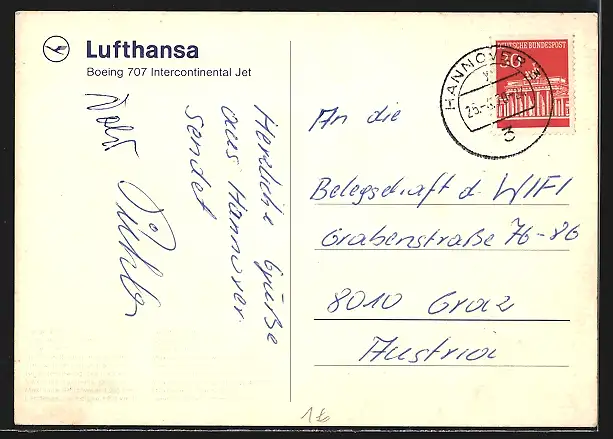 Lufthansa
Boeing 707 Intercontinental Jet
Herzliche Grüße
aus Hannover
sendet
DEUTSCHE BUNDESPOST
30
HANNOVER
3
An die
Belegschaft d. WIFI
Grabenstraße 76-86
8010 Graz
Austria